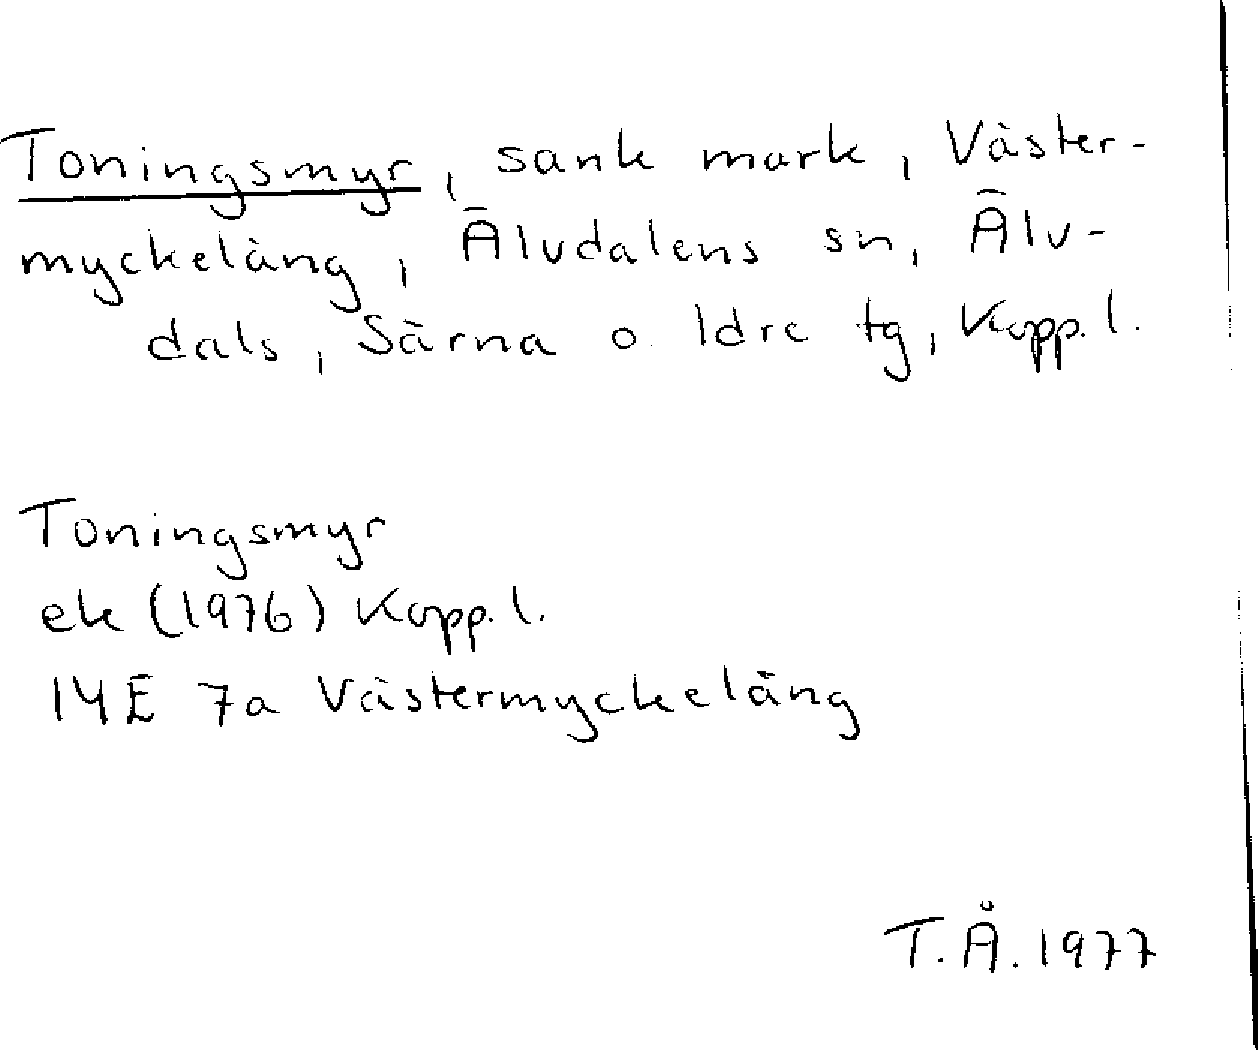 Toningsmyr, sank mark, Väster-
myckeläng, Älvdalens sn, Älv-
dals, Särna o. Idre tg, Kopp. l.
Toningsmyr
ek (1976) Kopp. l.
14E 7a Västermyckeläng
T.Å. 1977